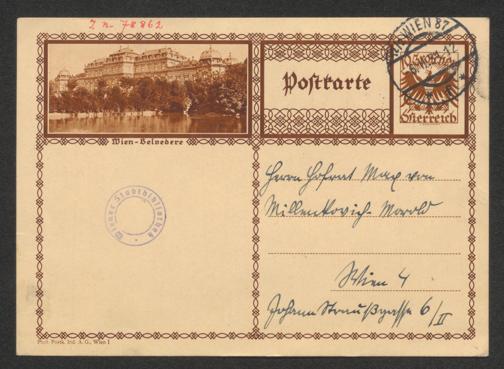 I. N. 78862
WIEN 87
Wien - Belvedere
Postkarte
Österreich
Herrn Hofrat Max von
Millenkovich-Morold
Wien 4
Johann Straußgasse 6/II
Wiener Stadtbibliothek
Phot. Postk. Ind. A. G., Wien I